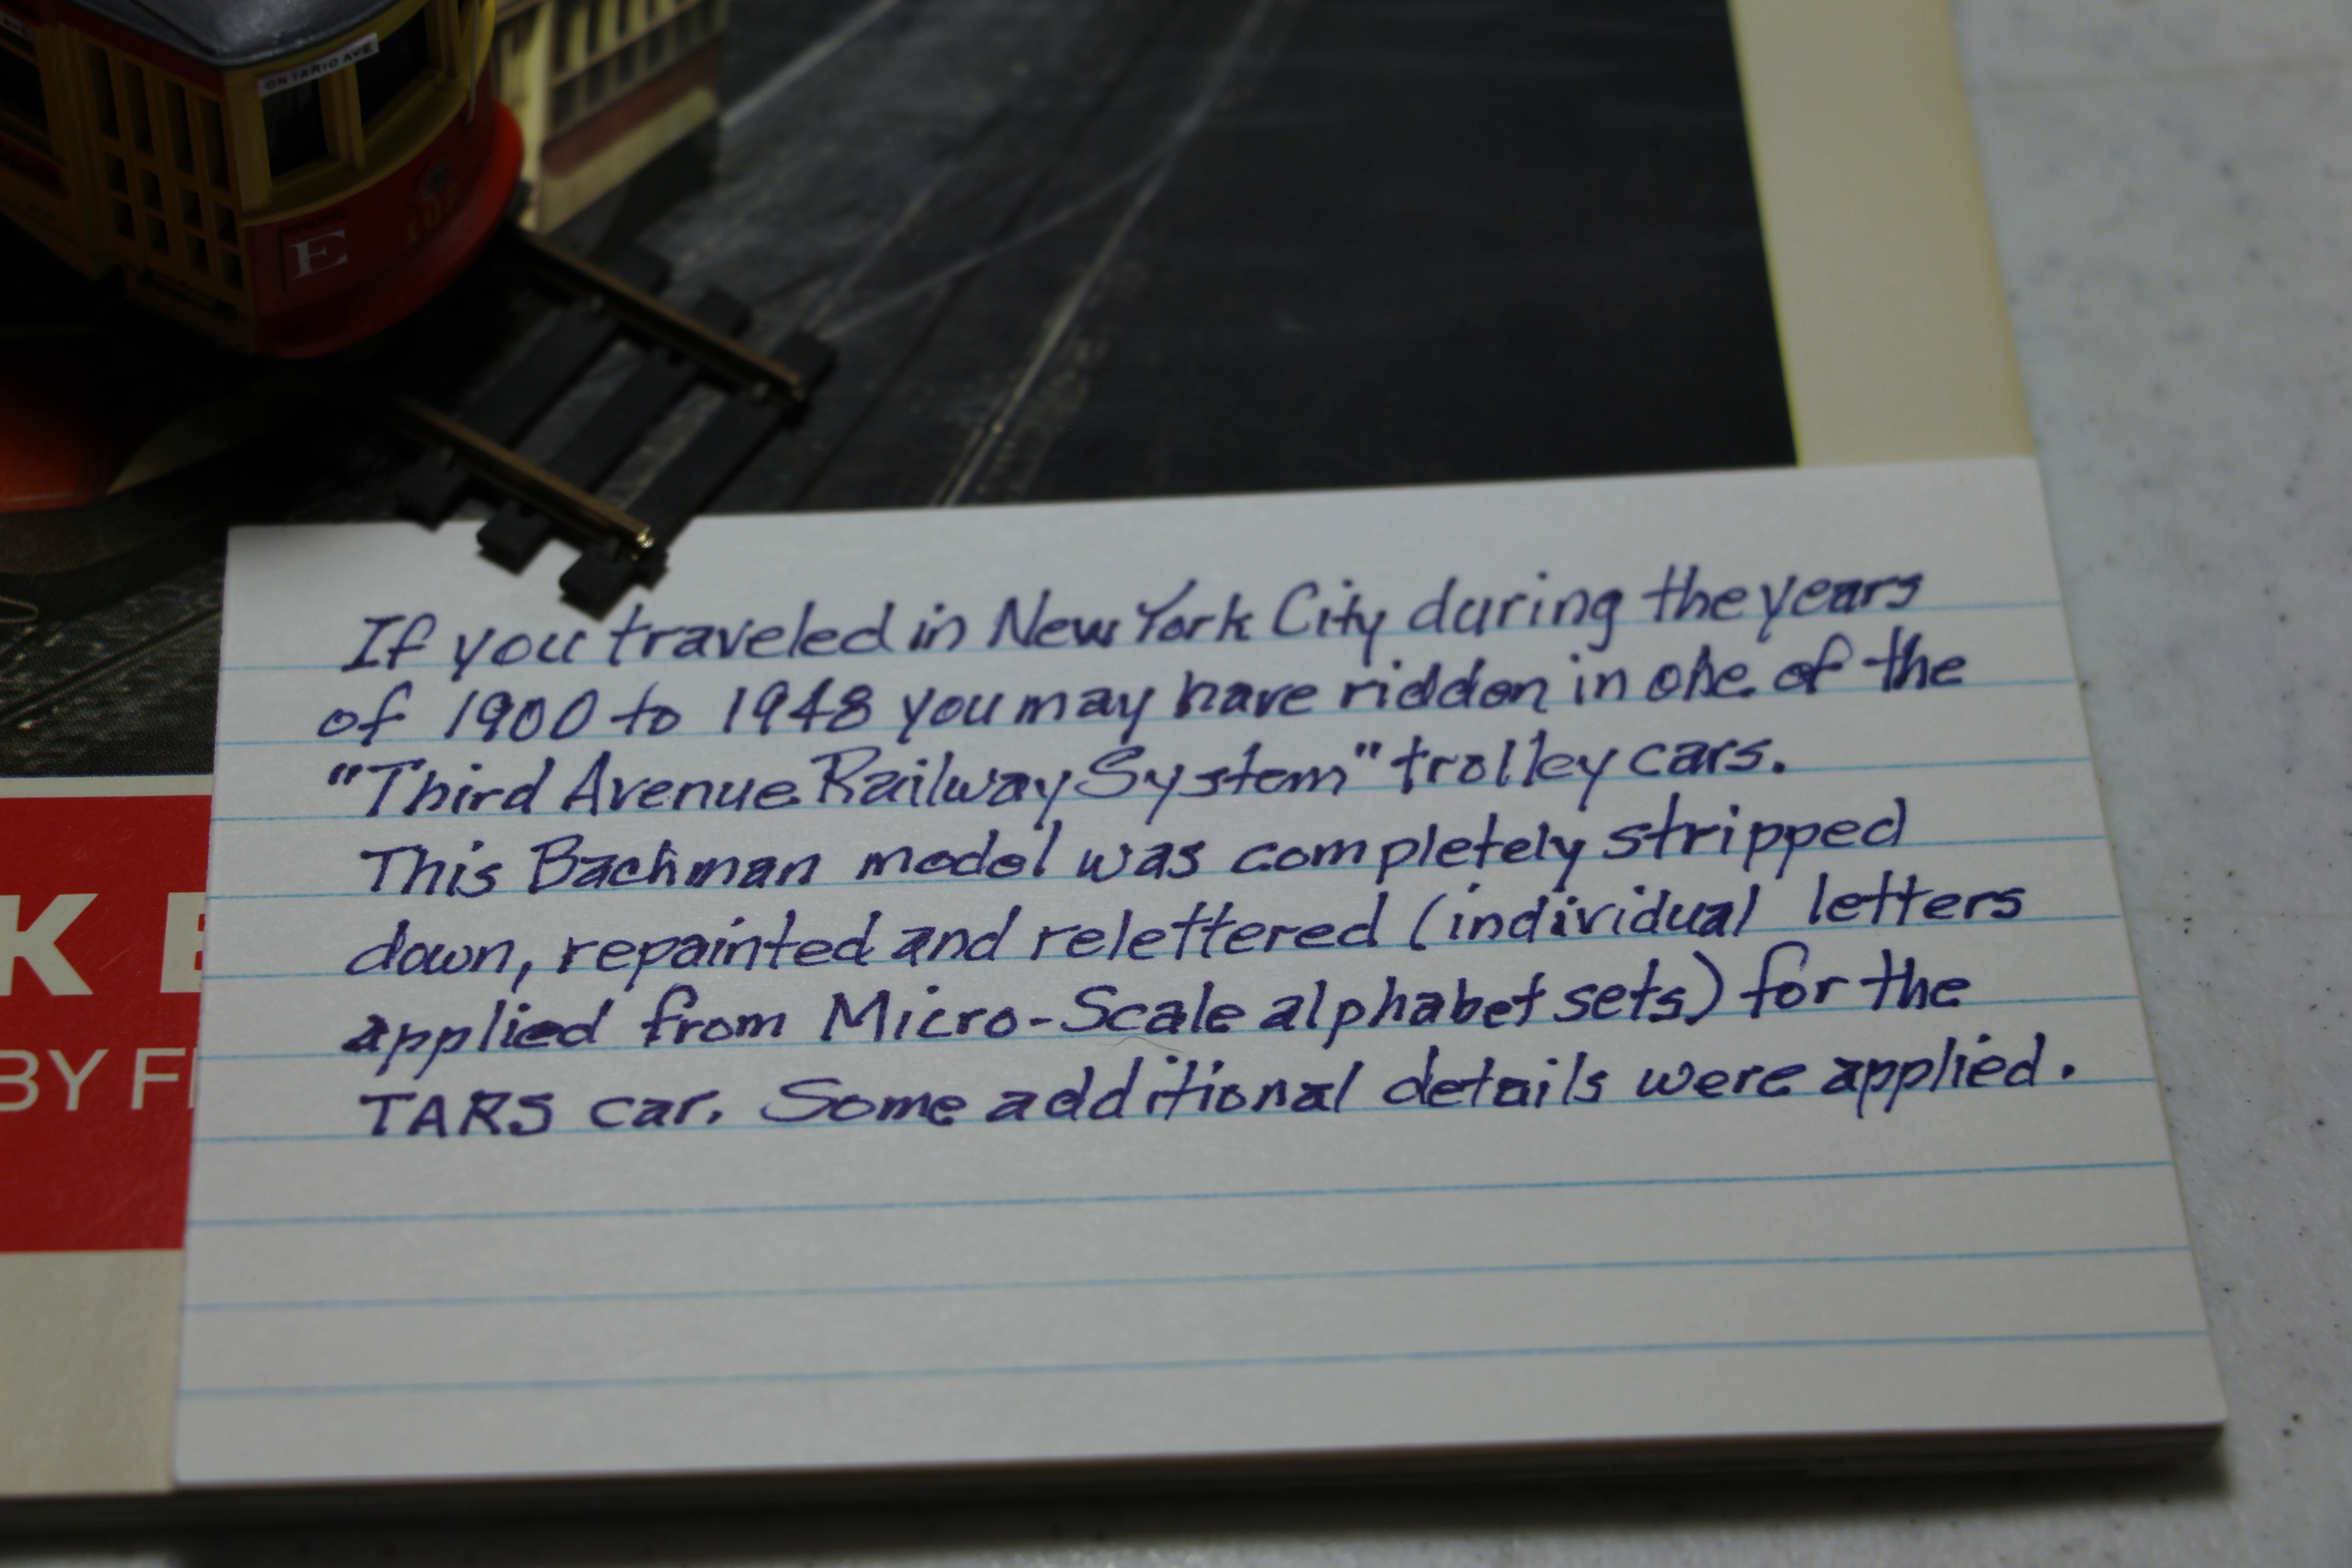 ONTARIO AVE
E
If you traveled in New York City during the years
of 1900 to 1948 you may have ridden in one of the
"Third Avenue Railway System" trolley cars.
This Bachman model was completely stripped
down, repainted and relettered (individual letters
applied from Micro-Scale alphabet sets) for the
TARS car. Some additional details were applied.
K
BY